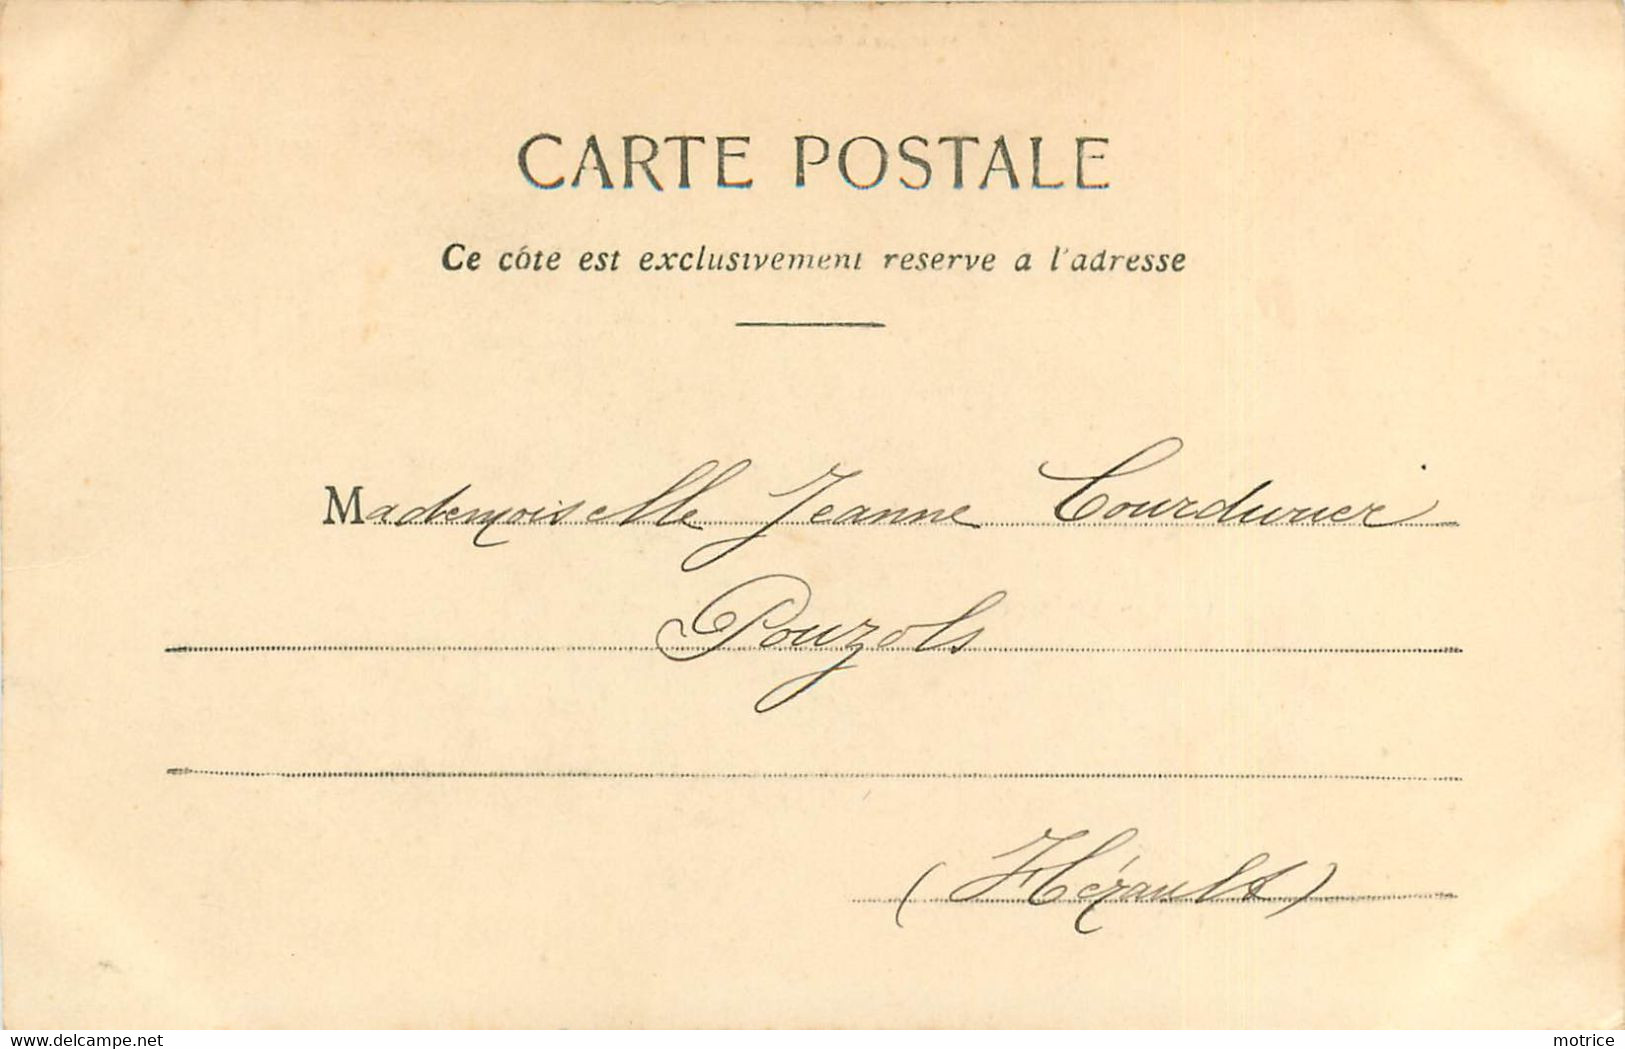 CARTE POSTALE
Ce côte est exclusivement reserve a l'adresse
Mademoiselle Jeanne Courdurier
Pouzols
(Hérault)
www.delcampe.net
motrice